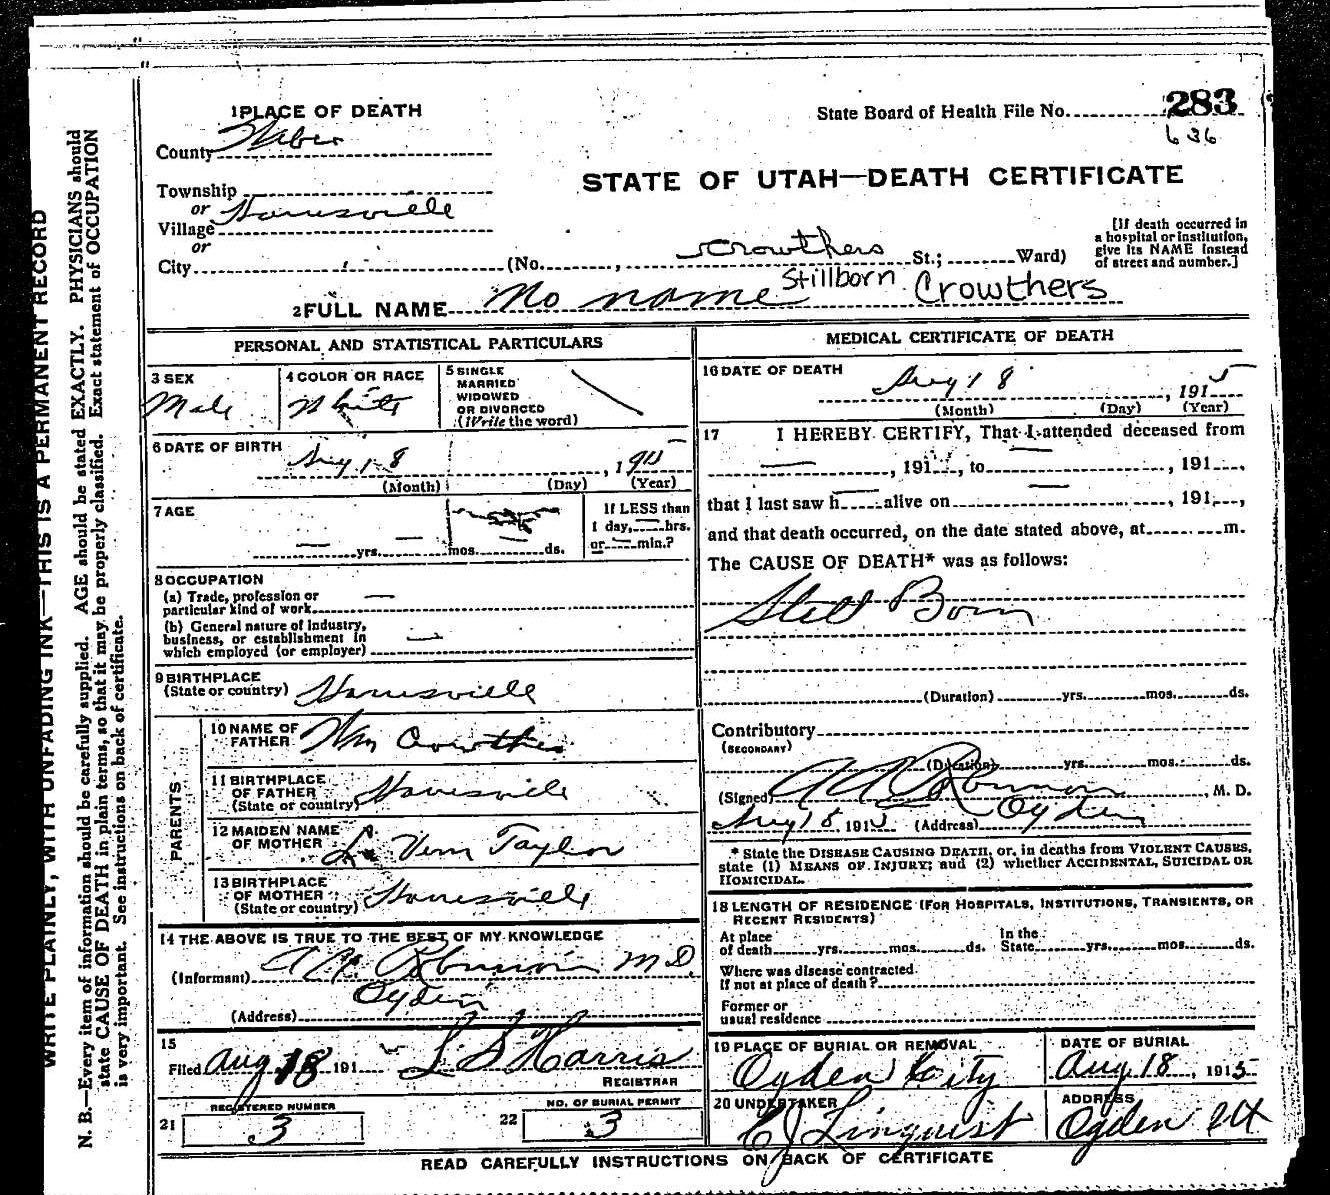 1 PLACE OF DEATH
State Board of Health File No. 283
636
County Weber
STATE OF UTAH—DEATH CERTIFICATE
Township
or
Village Harrisville
or
City (No. , Crowthers St.; Ward)
[If death occurred in
a hospital or institution,
give its NAME instead
of street and number.]
2 FULL NAME No name Stillborn Crowthers
PERSONAL AND STATISTICAL PARTICULARS
3 SEX
Male
4 COLOR OR RACE
White
5 SINGLE
MARRIED
WIDOWED
OR DIVORCED
(Write the word)
6 DATE OF BIRTH
Aug 18 , 1915
(Month) (Day) (Year)
7 AGE
— yrs. — mos. — ds.
If LESS than
1 day, — hrs.
or — min.?
8 OCCUPATION
(a) Trade, profession or
particular kind of work —
(b) General nature of industry,
business, or establishment in
which employed (or employer) —
9 BIRTHPLACE
(State or country) Harrisville
PARENTS
10 NAME OF
FATHER Wm Crowthers
11 BIRTHPLACE
OF FATHER
(State or country) Harrisville
12 MAIDEN NAME
OF MOTHER La Vern Taylor
13 BIRTHPLACE
OF MOTHER
(State or country) Harrisville
14 THE ABOVE IS TRUE TO THE BEST OF MY KNOWLEDGE
(Informant) Robinson M D.
(Address) Ogden
15
Filed Aug 18 191 L S Harris
REGISTRAR
21 REGISTERED NUMBER
3
22 NO. OF BURIAL PERMIT
3
MEDICAL CERTIFICATE OF DEATH
16 DATE OF DEATH
Aug 18 , 1915
(Month) (Day) (Year)
17 I HEREBY CERTIFY, That I attended deceased from
— , 191 , to — , 191 ,
that I last saw h — alive on — , 191 ,
and that death occurred, on the date stated above, at m.
The CAUSE OF DEATH* was as follows:
Still Born
(Duration) yrs. mos. ds.
Contributory
(SECONDARY)
(Duration) yrs. mos. ds.
(Signed) Robinson , M. D.
Aug 18 1915 (Address) Ogden
* State the DISEASE CAUSING DEATH, or, in deaths from VIOLENT CAUSES,
state (1) MEANS OF INJURY; and (2) whether ACCIDENTAL, SUICIDAL OR
HOMICIDAL.
18 LENGTH OF RESIDENCE (FOR HOSPITALS, INSTITUTIONS, TRANSIENTS, OR
RECENT RESIDENTS)
At place
of death yrs. mos. ds.
In the
State yrs. mos. ds.
Where was disease contracted
if not at place of death?
Former or
usual residence
19 PLACE OF BURIAL OR REMOVAL
Ogden City
DATE OF BURIAL
Aug 18 , 1915
20 UNDERTAKER
E J Linquist
ADDRESS
Ogden Ut
READ CAREFULLY INSTRUCTIONS ON BACK OF CERTIFICATE
WRITE PLAINLY, WITH UNFADING INK—THIS IS A PERMANENT RECORD
N. B.—Every item of information should be carefully supplied. AGE should be stated EXACTLY. PHYSICIANS should
state CAUSE OF DEATH in plain terms, so that it may be properly classified. Exact statement of OCCUPATION
is very important. See instructions on back of certificate.